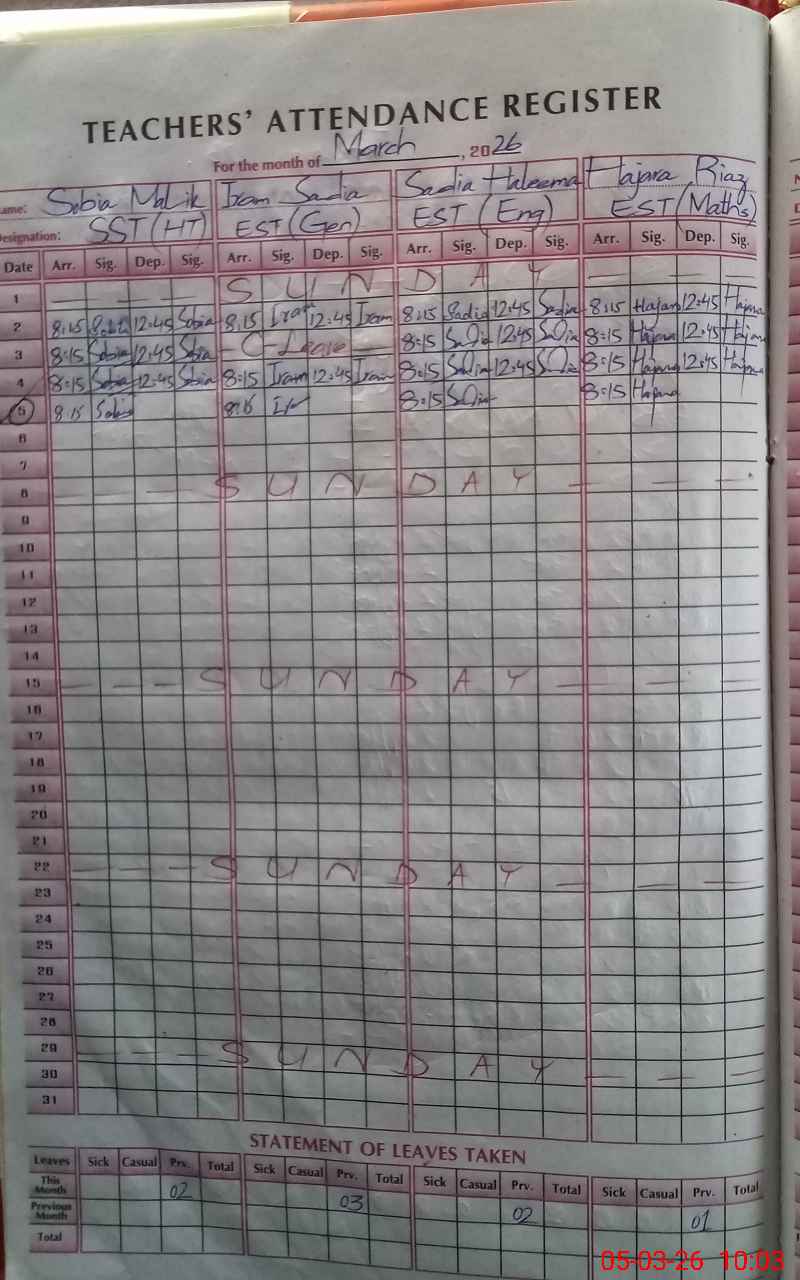 TEACHERS' ATTENDANCE REGISTER
For the month of March, 2026
Name: Sobia Malik Iram Sadia Sadia Haleema Hajara Riaz
Designation: SST (HT) EST (Gen) EST (Eng) EST (Maths)
Date Arr. Sig. Dep. Sig. Arr. Sig. Dep. Sig. Arr. Sig. Dep. Sig. Arr. Sig. Dep. Sig.
1 — — — — S U N D A Y — — — —
2 8:15 Sobia 12:45 Sobia 8:15 Iram 12:45 Iram 8:15 Sadia 12:45 Sadia 8:15 Hajara 12:45 Hajara
3 8:15 Sobia 12:45 Sobia – C-Leave – 8:15 Sadia 12:45 Sadia 8:15 Hajara 12:45 Hajara
4 8:15 Sobia 12:45 Sobia 8:15 Iram 12:45 Iram 8:15 Sadia 12:45 Sadia 8:15 Hajara 12:45 Hajara
5 8:15 Sobia 8:15 8:15 Sadia 8:15 Hajara
6
7
8 — — — S U N D A Y — — — —
9
10
11
12
13
14
15 — — — S U N D A Y — — — —
16
17
18
19
20
21
22 — — — S U N D A Y — — —
23
24
25
26
27
28
29 — — — S U N D A Y — — —
30
31
STATEMENT OF LEAVES TAKEN
Leaves Sick Casual Prv. Total Sick Casual Prv. Total Sick Casual Prv. Total Sick Casual Prv. Total
This Month 02 03 02 01
Previous Month
Total
05-03-26 10:03